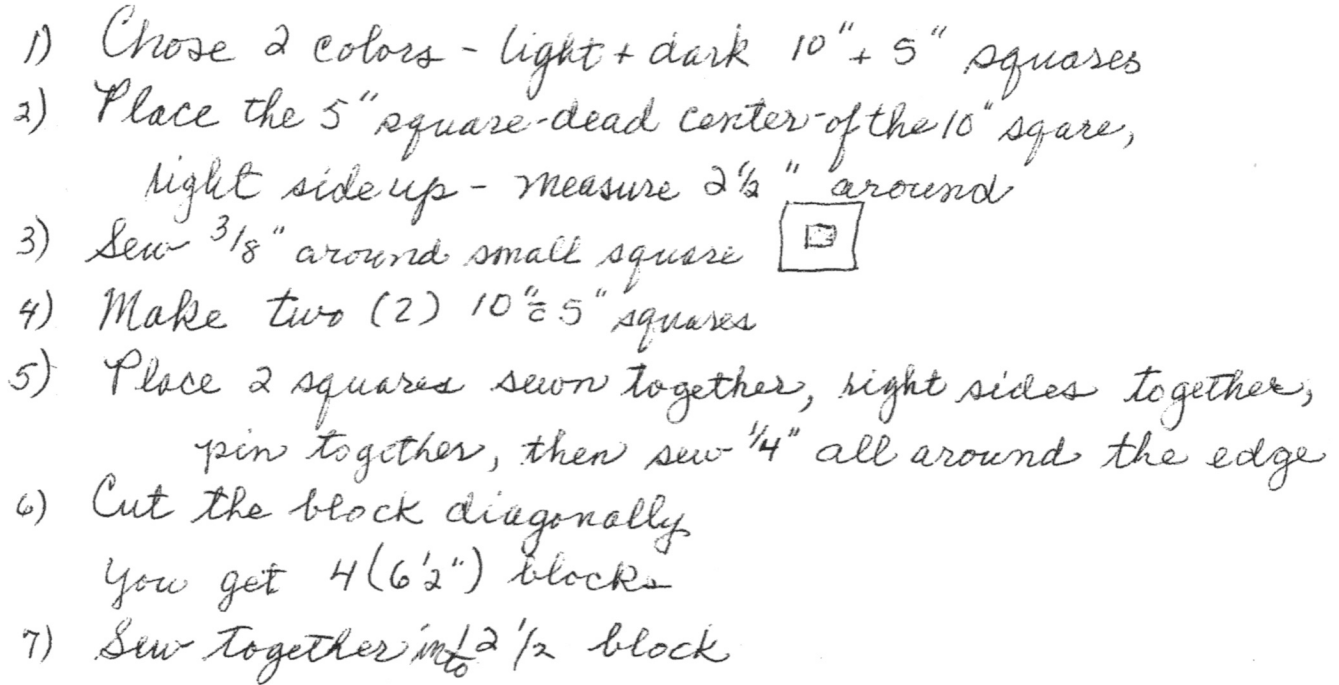 1) Chose 2 colors - light + dark 10" + 5" squares
2) Place the 5" square-dead center-of the 10" sqare,
right side up - measure 2 1/2" around
3) Sew 3/8" around small square
4) Make two (2) 10" c̄ 5" squares
5) Place 2 squares sewn together, right sides together,
pin together, then sew 1/4" all around the edge
6) Cut the block diagonally
You get 4 (6 1/2") blocks
7) Sew together into 12 1/2 block